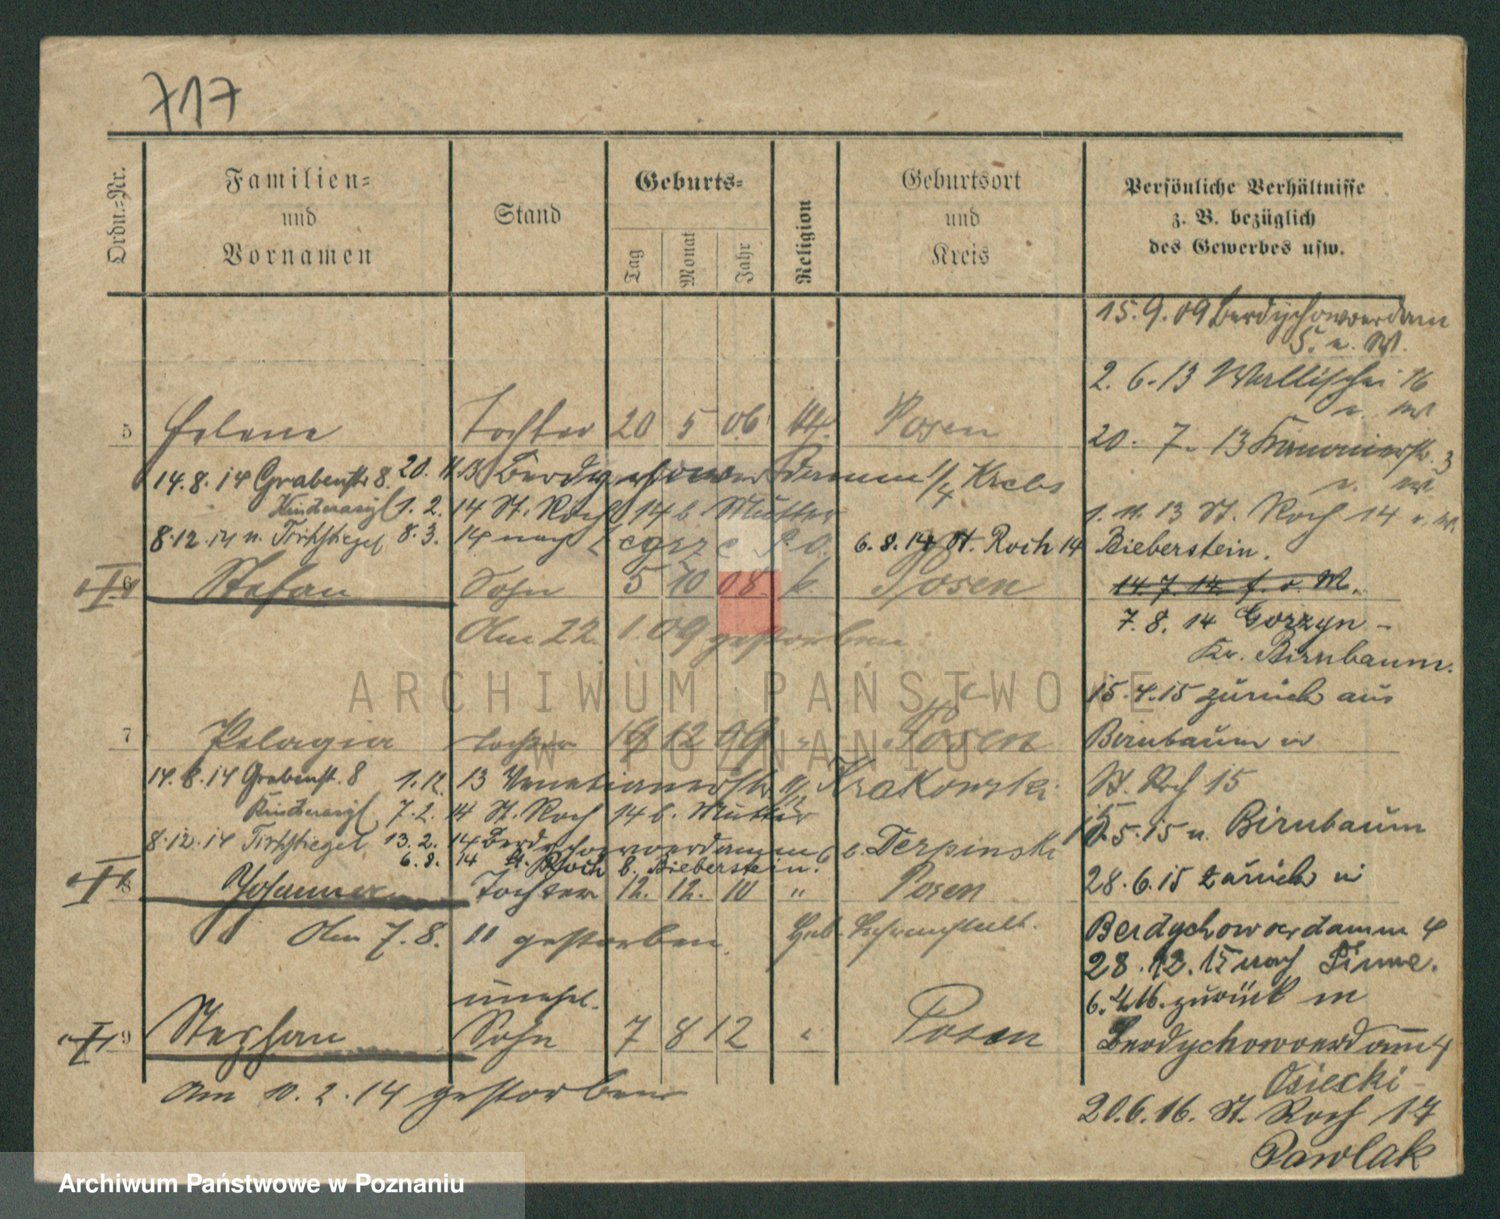 717
Ordn.=Nr.
Familien=
und
Vornamen
Stand
Geburts=
Tag
Monat
Jahr
Religion
Geburtsort
und
Kreis
Persönliche Verhältnisse
z. B. bezüglich
des Gewerbes usw.
15.9.09 Berdychowerdam
5. u. W.
2. 6. 13 Wallischei 76
5 Helene Tochter 20 5 06 Posen
20. 7. 13 3
14.8.14 Grabenstr 8. 20. 11 13 Berdychower Damm 1/4 Krebs
Kinderasyl 1. 2. 14 St. Roch 14 b. Mutter
1. 11. 13 St. Roch 14
8.12.14 n. Tirschtiegel 8. 3. 14 nach 6. 8. 14 St. Roch 14 Bieberstein.
6 Stefan Sohn 5 10 08. k. Posen
14.7.14.
Am 22. 1 09 gestorben.
7. 8. 14 Gorzyn -
Kr. Birnbaum.
15.4.15 zurück aus
7 Pelagia Tochter 12 99 " Posen
Birnbaum in
14.8.14 Grabenstr. 8 1.12. 13 Venetianerstr Krakowski
St. Roch 15
Kinderasyl 7.2. 14 St. Roch 14 b. Mutter
8.12.14 Tirschtiegel 13. 2. 14 Berdychowerdamm 6 b. Derpinski
15.5.15 n. Birnbaum
6.8. 14 St. Roch b. Bieberstein.
8 Johanna Tochter 12. 12. 10 " Posen
28.6.15 zurück in
Am 7.8. 11 gestorben. Heb. Lehranstalt.
Berdychowerdamm 4
28.12.15 nach Pinne.
unehel.
6.4.16. zurück in
9 Stephan Sohn 7 8 12 " Posen
Berdychowerdamm 4
Am 10.2.14 gestorben
Osiecki
20.6.16. St. Roch 17
Pawlak
ARCHIWUM PAŃSTWOWE
W POZNANIU
Archiwum Państwowe w Poznaniu